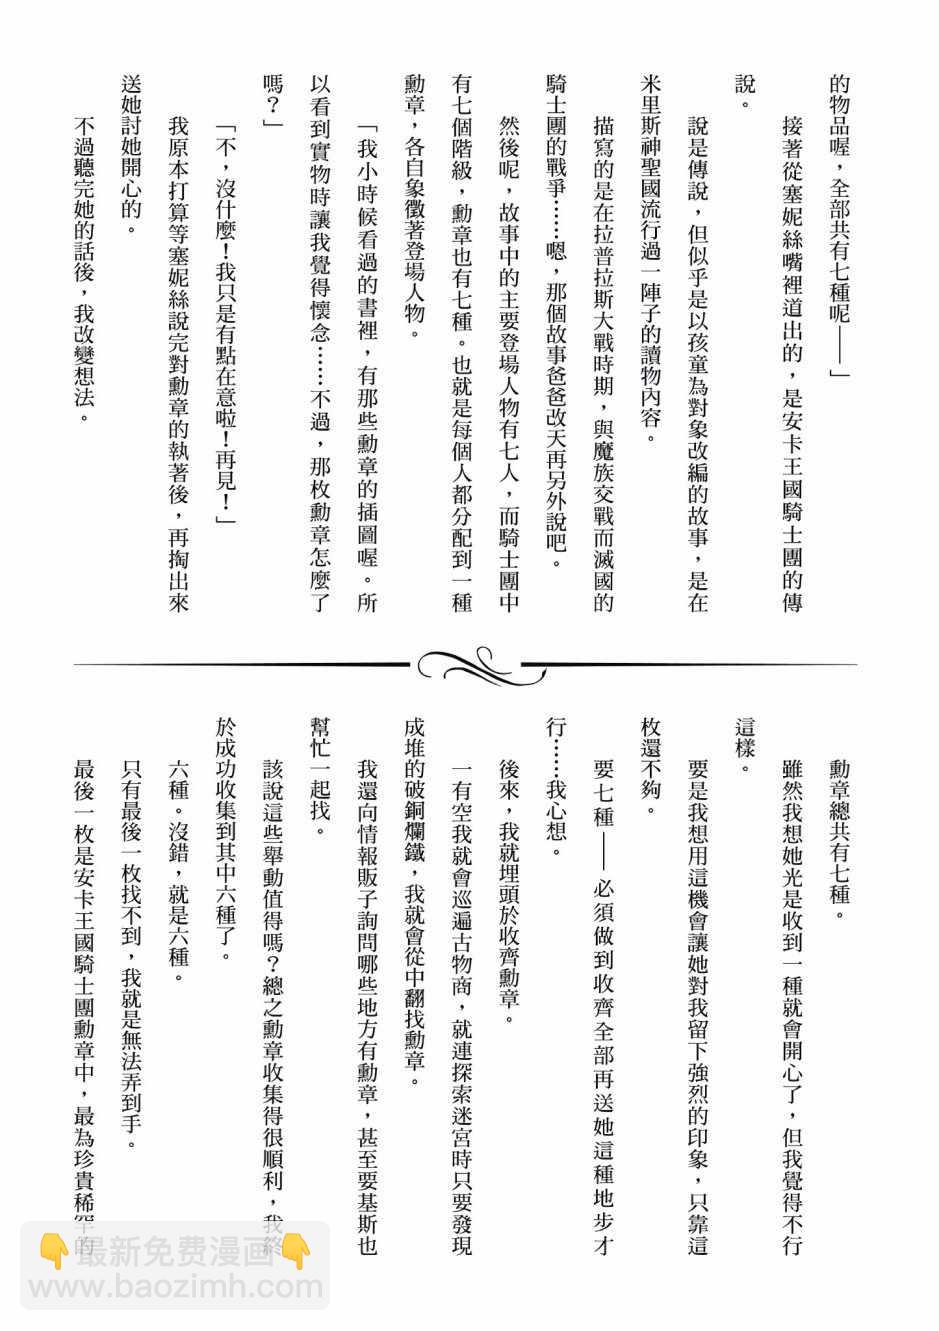 的物品喔，全部共有七種呢——」
接著從塞妮絲嘴裡道出的，是安卡王國騎士團的傳
說。
說是傳說，但似乎是以孩童為對象改編的故事，是在
米里斯神聖國流行過一陣子的讀物內容。
描寫的是在拉普拉斯大戰時期，與魔族交戰而滅國的
騎士團的戰爭……嗯，那個故事爸爸改天再另外說吧。
然後呢，故事中的主要登場人物有七人，而騎士團中
有七個階級，勳章也有七種。也就是每個人都分配到一種
勳章，各自象徵著登場人物。
「我小時候看過的書裡，有那些勳章的插圖喔。所
以看到實物時讓我覺得懷念……不過，那枚勳章怎麼了
嗎？」
「不，沒什麼！我只是有點在意啦！再見！」
我原本打算等塞妮絲說完對勳章的執著後，再掏出來
送她討她開心的。
不過聽完她的話後，我改變想法。
勳章總共有七種。
雖然我想她光是收到一種就會開心了，但我覺得不行
這樣。
要是我想用這機會讓她對我留下強烈的印象，只靠這
枚還不夠。
要七種——必須做到收齊全部再送她這種地步才
行……我心想。
後來，我就埋頭於收齊勳章。
一有空我就會巡遍古物商，就連探索迷宮時只要發現
成堆的破銅爛鐵，我就會從中翻找勳章。
我還向情報販子詢問哪些地方有勳章，甚至要基斯也
幫忙一起找。
該說這些舉動值得嗎？總之勳章收集得很順利，我終
於成功收集到其中六種了。
六種。沒錯，就是六種。
只有最後一枚找不到，我就是無法弄到手。
最後一枚是安卡王國騎士團勳章中，最為珍貴稀罕的
最新免费漫画
www.baozimh.com